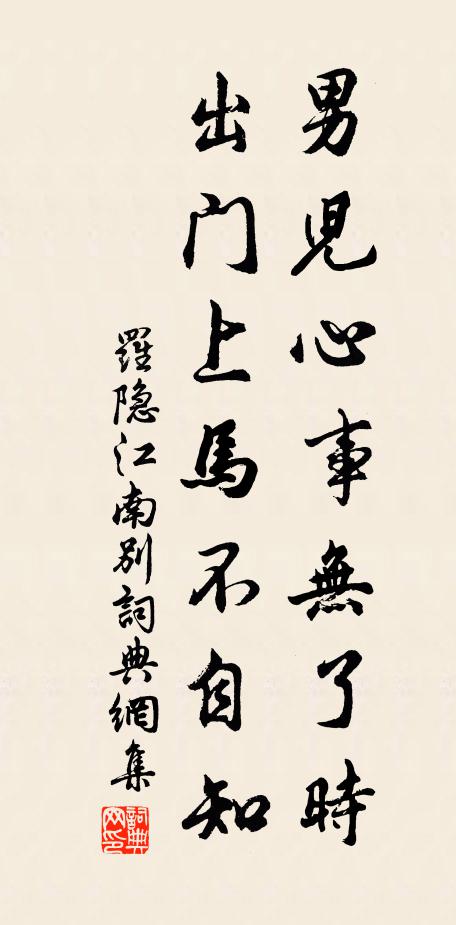 男児心事無了時
出门上馬不自知
羅隐江南別詞典網集
詞典网印